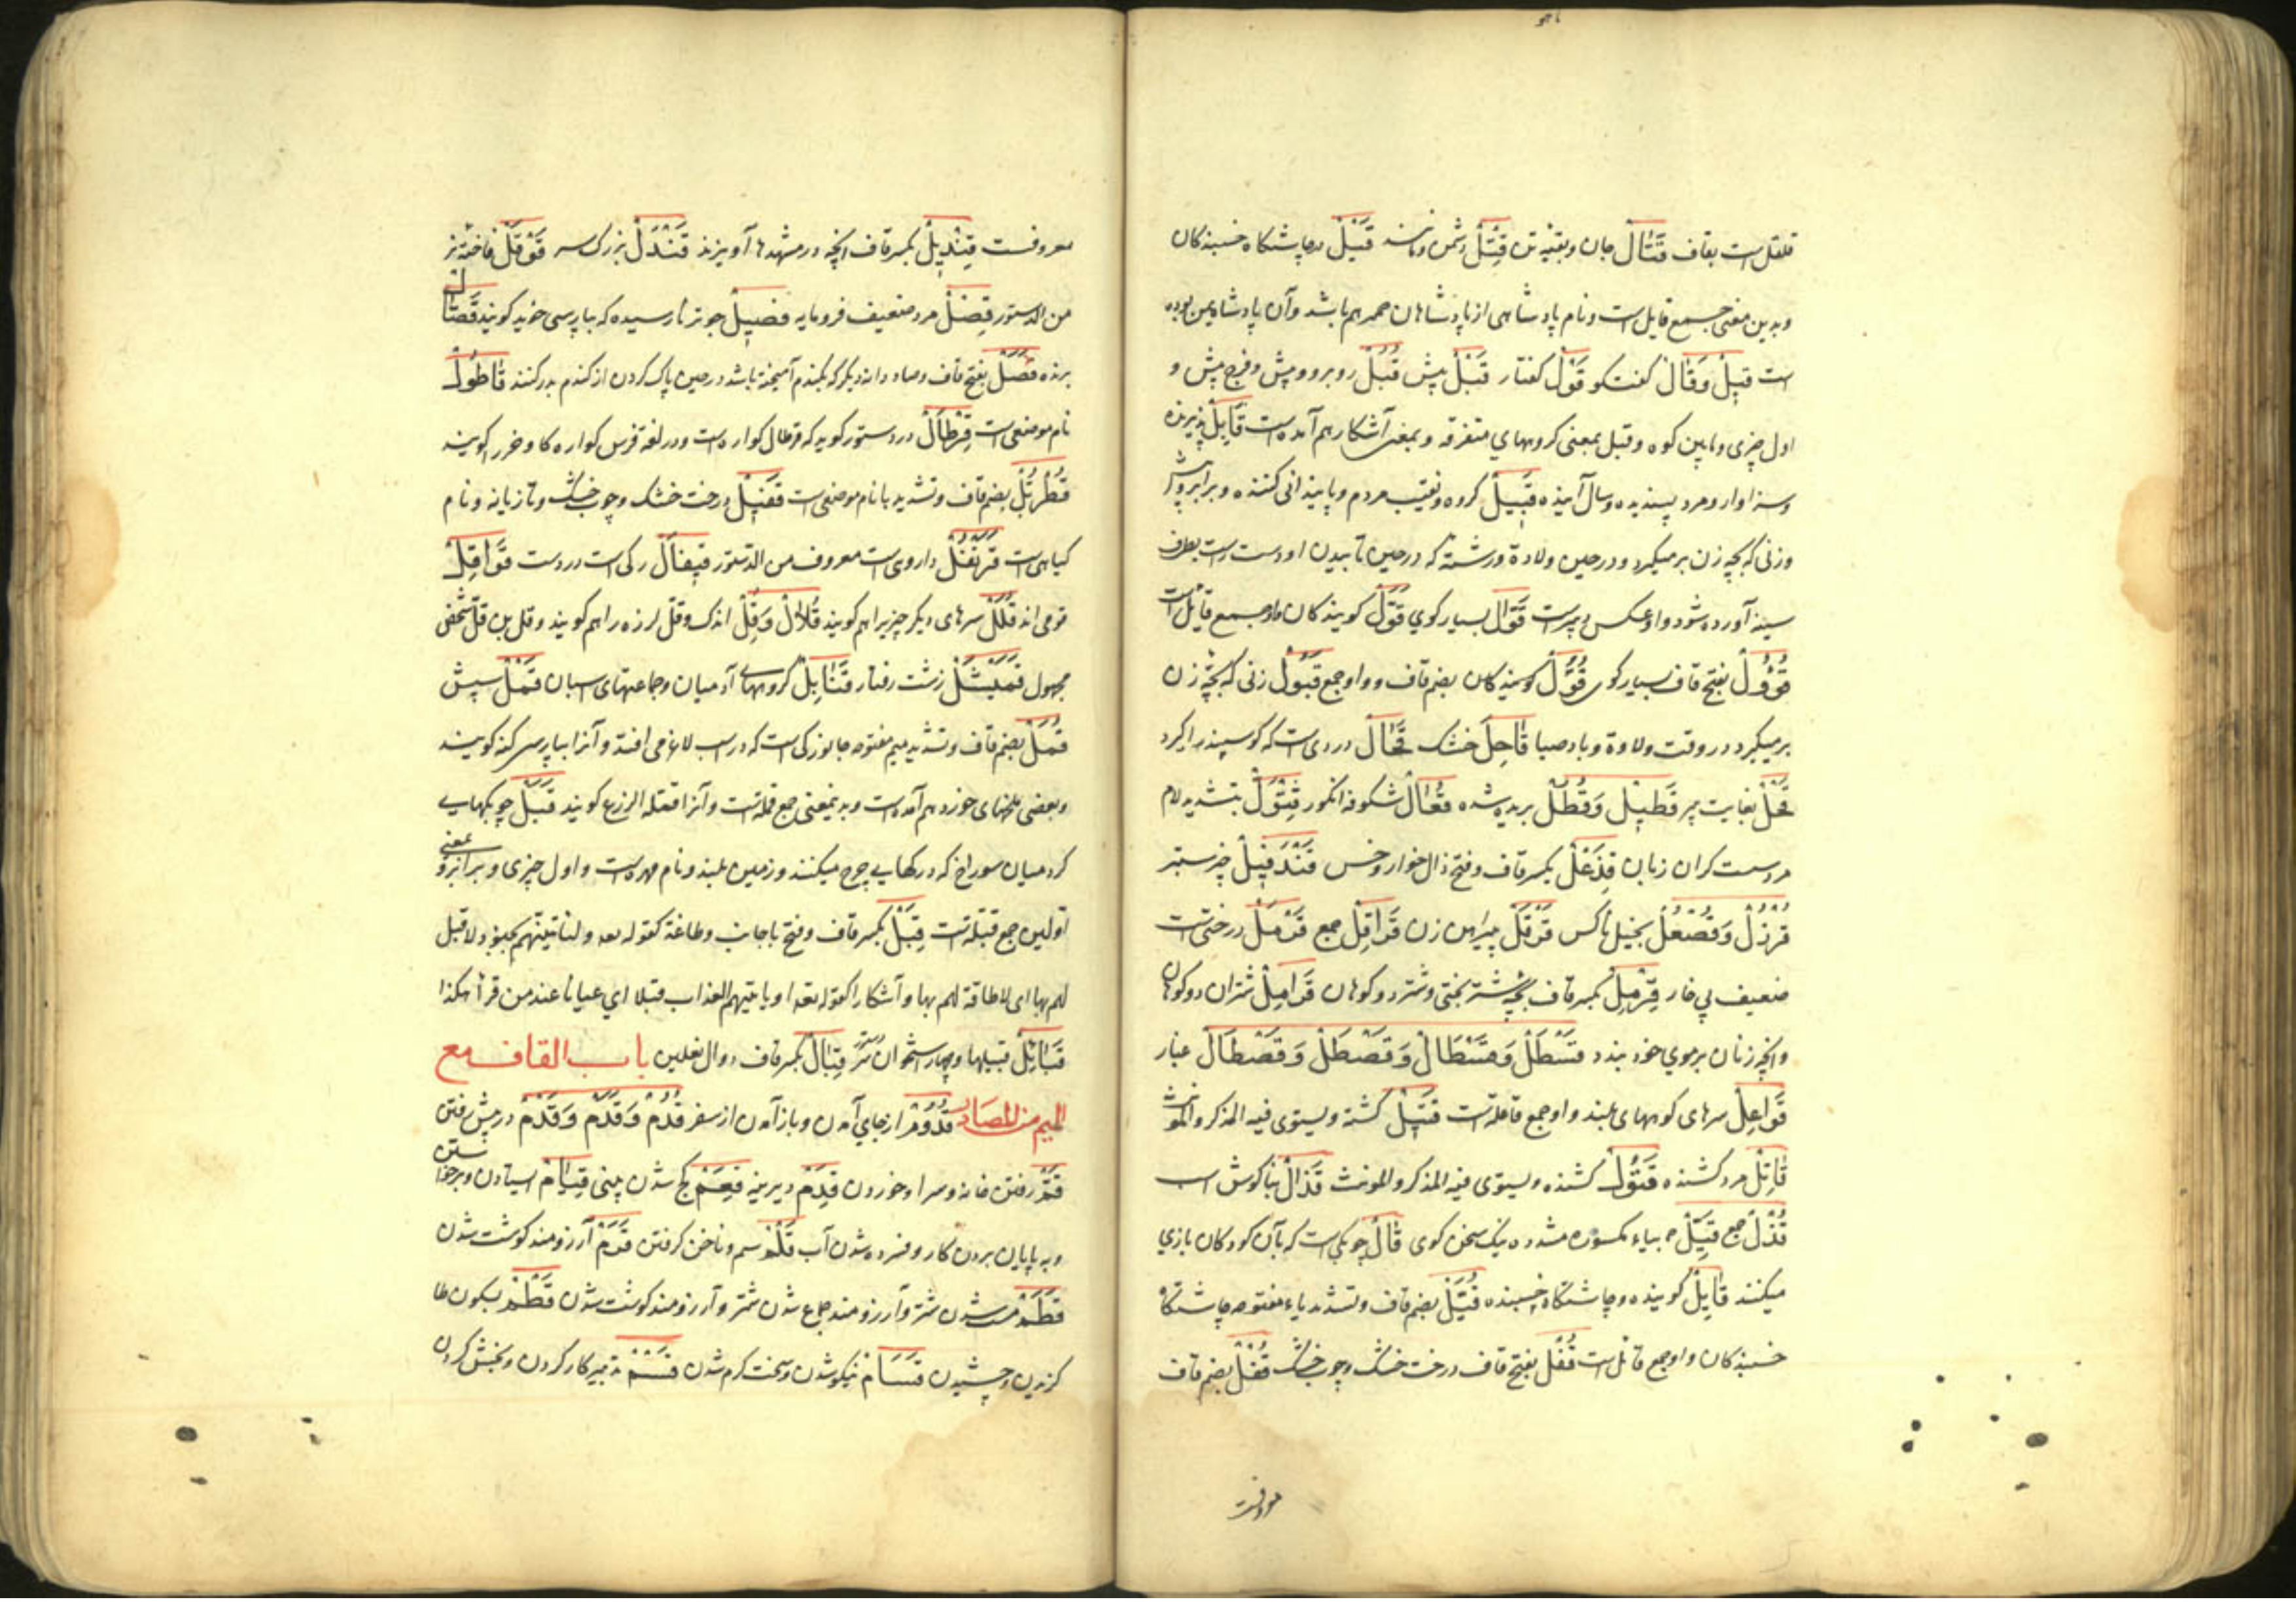 قلقل است بقاف قَتَالْ جان و بقیه تن قِتْلْ دشمن و مانند قَیْلْ در چاشتکاه خسبندکان
و بدین معنی جمع قایل است و نام پادشاهی از پادشاهان حمیر هم باشد و آن پادشاه یمن بوده
است قِیلْ وَقَالْ کفتکو قَوْلْ کفتار قَبْلْ پیش قُبُلْ روبرو و پیش و فرج پیش و
اول چیزی و پایین کوه و قبل بمعنی کروههای متفرقه و بمعنی آشکار هم آمده است قَابِلْ پذیرنده
و سزاوار و مرد پسندیده و سال آینده قَبِیلْ کروه و نقیب مردم و پایندانی کننده و برابر و پیش
و زنی که بچه زن بر میکیرد و در حین ولادة و رشته که در حین تابیدن او دست راست بطرف
سینه آورده شود و او عکس دبیر است قَوَّالْ بسیار کوی قُوَّلْ کویندکان و او جمع قائل است
قَوُولْ بفتح قاف بسیار کوی قُوُلْ کویندکان بضم قاف و واو جمع قَبُولْ زنی که بچه زن
بر میکیرد در وقت ولادة و باد صبا قَاحِلْ خشک قُحَالْ دردی است که کوسپند را کیرد
قَحْلْ بغایت پیر قَطِیلْ وَقُطُلْ بریده شده قُعَالْ شکوفه انکور قِثْوَلّْ بتشدید لام
مردست کران زبان قِذَعْلْ بکسر قاف و فتح ذال خوار و خس قَنْدَفِیلْ چیز ستبر
قُرْزُلْ وَقُصْعُلْ بخیل ناکس قَرْقَلْ پیراهن زن قَرَاقِلْ جمع قَرْمَلْ درختی است
ضعیف بی خار قِرْمِلْ بکسر قاف بچه شتر بختی و شتر دو کوهان قَرَامِلْ شتران دو کوهان
و آنچه زنان بر موی خود بندد قَسْطَلْ وَقَسْطَالْ وَقَصْطَلْ وَقَصْطَالْ غبار
قَوَاعِلْ سرهای کوههای بلند و او جمع قاعله است قَتِیلْ کشته و یستوی فیه المذکر والمونث
قَاتِلْ مرد کشنده قَتُولْ کشنده و یستوی فیه المذکر والمونث قَذَالْ بناکوش اسب
قُذُلْ جمع قَیِّلْ بیاء مکسوره مشدده نیک سخن کوی قَالْ چوبکی است که بآن کودکان بازی
میکنند قَایِلْ کوینده و چاشتکاه خسبنده قُیَّلْ بضم قاف و تشدید یاء مفتوحه چاشتکاه
خسبندکان و او جمع قائل است قَفْلْ بفتح قاف درخت خشک و چوب خشک قُفْلْ بضم قاف
معروفست
معروفست قِنْدِیلْ بکسر قاف آنچه در مشهدها آویزند قَنْدَلْ بزرک سر قَوْقَلْ فاخته نر
من الدستور قِصْلْ مرد ضعیف فرومایه قَصِیلْ جو تر نارسیده که بپارسی خوید کویند قَصَّالْ
برنده قَصَلْ بفتح قاف و صاد دانه دیکر که بکندم آمیخته باشد در حین پاک کردن از کندم بدر کنند قَاطُولْ
نام موضعی است قِرْطَالْ در دستور کوید که قرطال کواره است و در لغة فرس کواره کاو و خر را کویند
قُطْرُبُّلْ بضم قاف و تشدید با نام موضعی است قَفِیلْ درخت خشک و چوب خشک و تازیانه و نام
کیاهی است قَرَنْفُلْ داروی است معروف من الدستور قِیفَالْ رکی است در دست قَوَاقِلْ
قومی اند قُلَلْ سرهای دیکر چیز را هم کویند قُلَالْ وَقُلّْ اندک و قل لرزه را هم کویند و قل بن قل شخص
مجهول قَمَیْثَلْ زشت رفتار قَنَابِلْ کروههای آدمیان و جماعتهای اسبان قَمْلْ سپش
قُمَّلْ بضم قاف و تشدید میم مفتوحه جانورکی است که در اسب لاغر می افتد و آنرا بپارسی کنه کویند
و بعضی ملخهای خورد هم آمده است و بدین معنی جمع قمله است و آنرا قمله الزرع کویند قَبَلْ چوبکهایی
کرد میان سوراخ که در کهایی چرخ میکنند و زمین بلند و نام مهره است و اول چیزی و برابر و بمعنی
اولین جمع قبله است قِبَلْ بکسر قاف و فتح با جانب و طاقة کقوله تعه و لناتینهم بجنود لا قبل
لهم بها ای لا طاقة لهم بها و آشکارا کقوله تعه او یاتیهم العذاب قبلا ای عیانا عند من قرأ هکذا
قَبَائِلْ قبیلها و چهار استخوان سر قِبَالْ بکسر قاف دوال نعلین باب القاف مع
المیم من المصادر قُدُومْ از جای آمدن و باز آمدن از سفر قُدُمْ وَقَدَمْ وَقَدْمْ در پیش رفتن
قَمّْ رفتن خانه و سرا و خوردن قِدَمْ دیرینه قَعَمْ کج شدن بینی قِیَامْ ایستادن و برخواستن
و به پایان بردن کار و فسرده شدن آب قَلْمْ سم و ناخن کرفتن قَرَمْ آرزومند کوشت شدن
قَطَمْ مست شدن شتر و آرزومند جماع شدن شتر و آرزومند کوشت شدن قَطْمْ بسکون طا
کزیدن و چشیدن قَسَامْ نیکو شدن و سخت کرم شدن قَسْمْ تدبیر کار کردن و بخش کردن